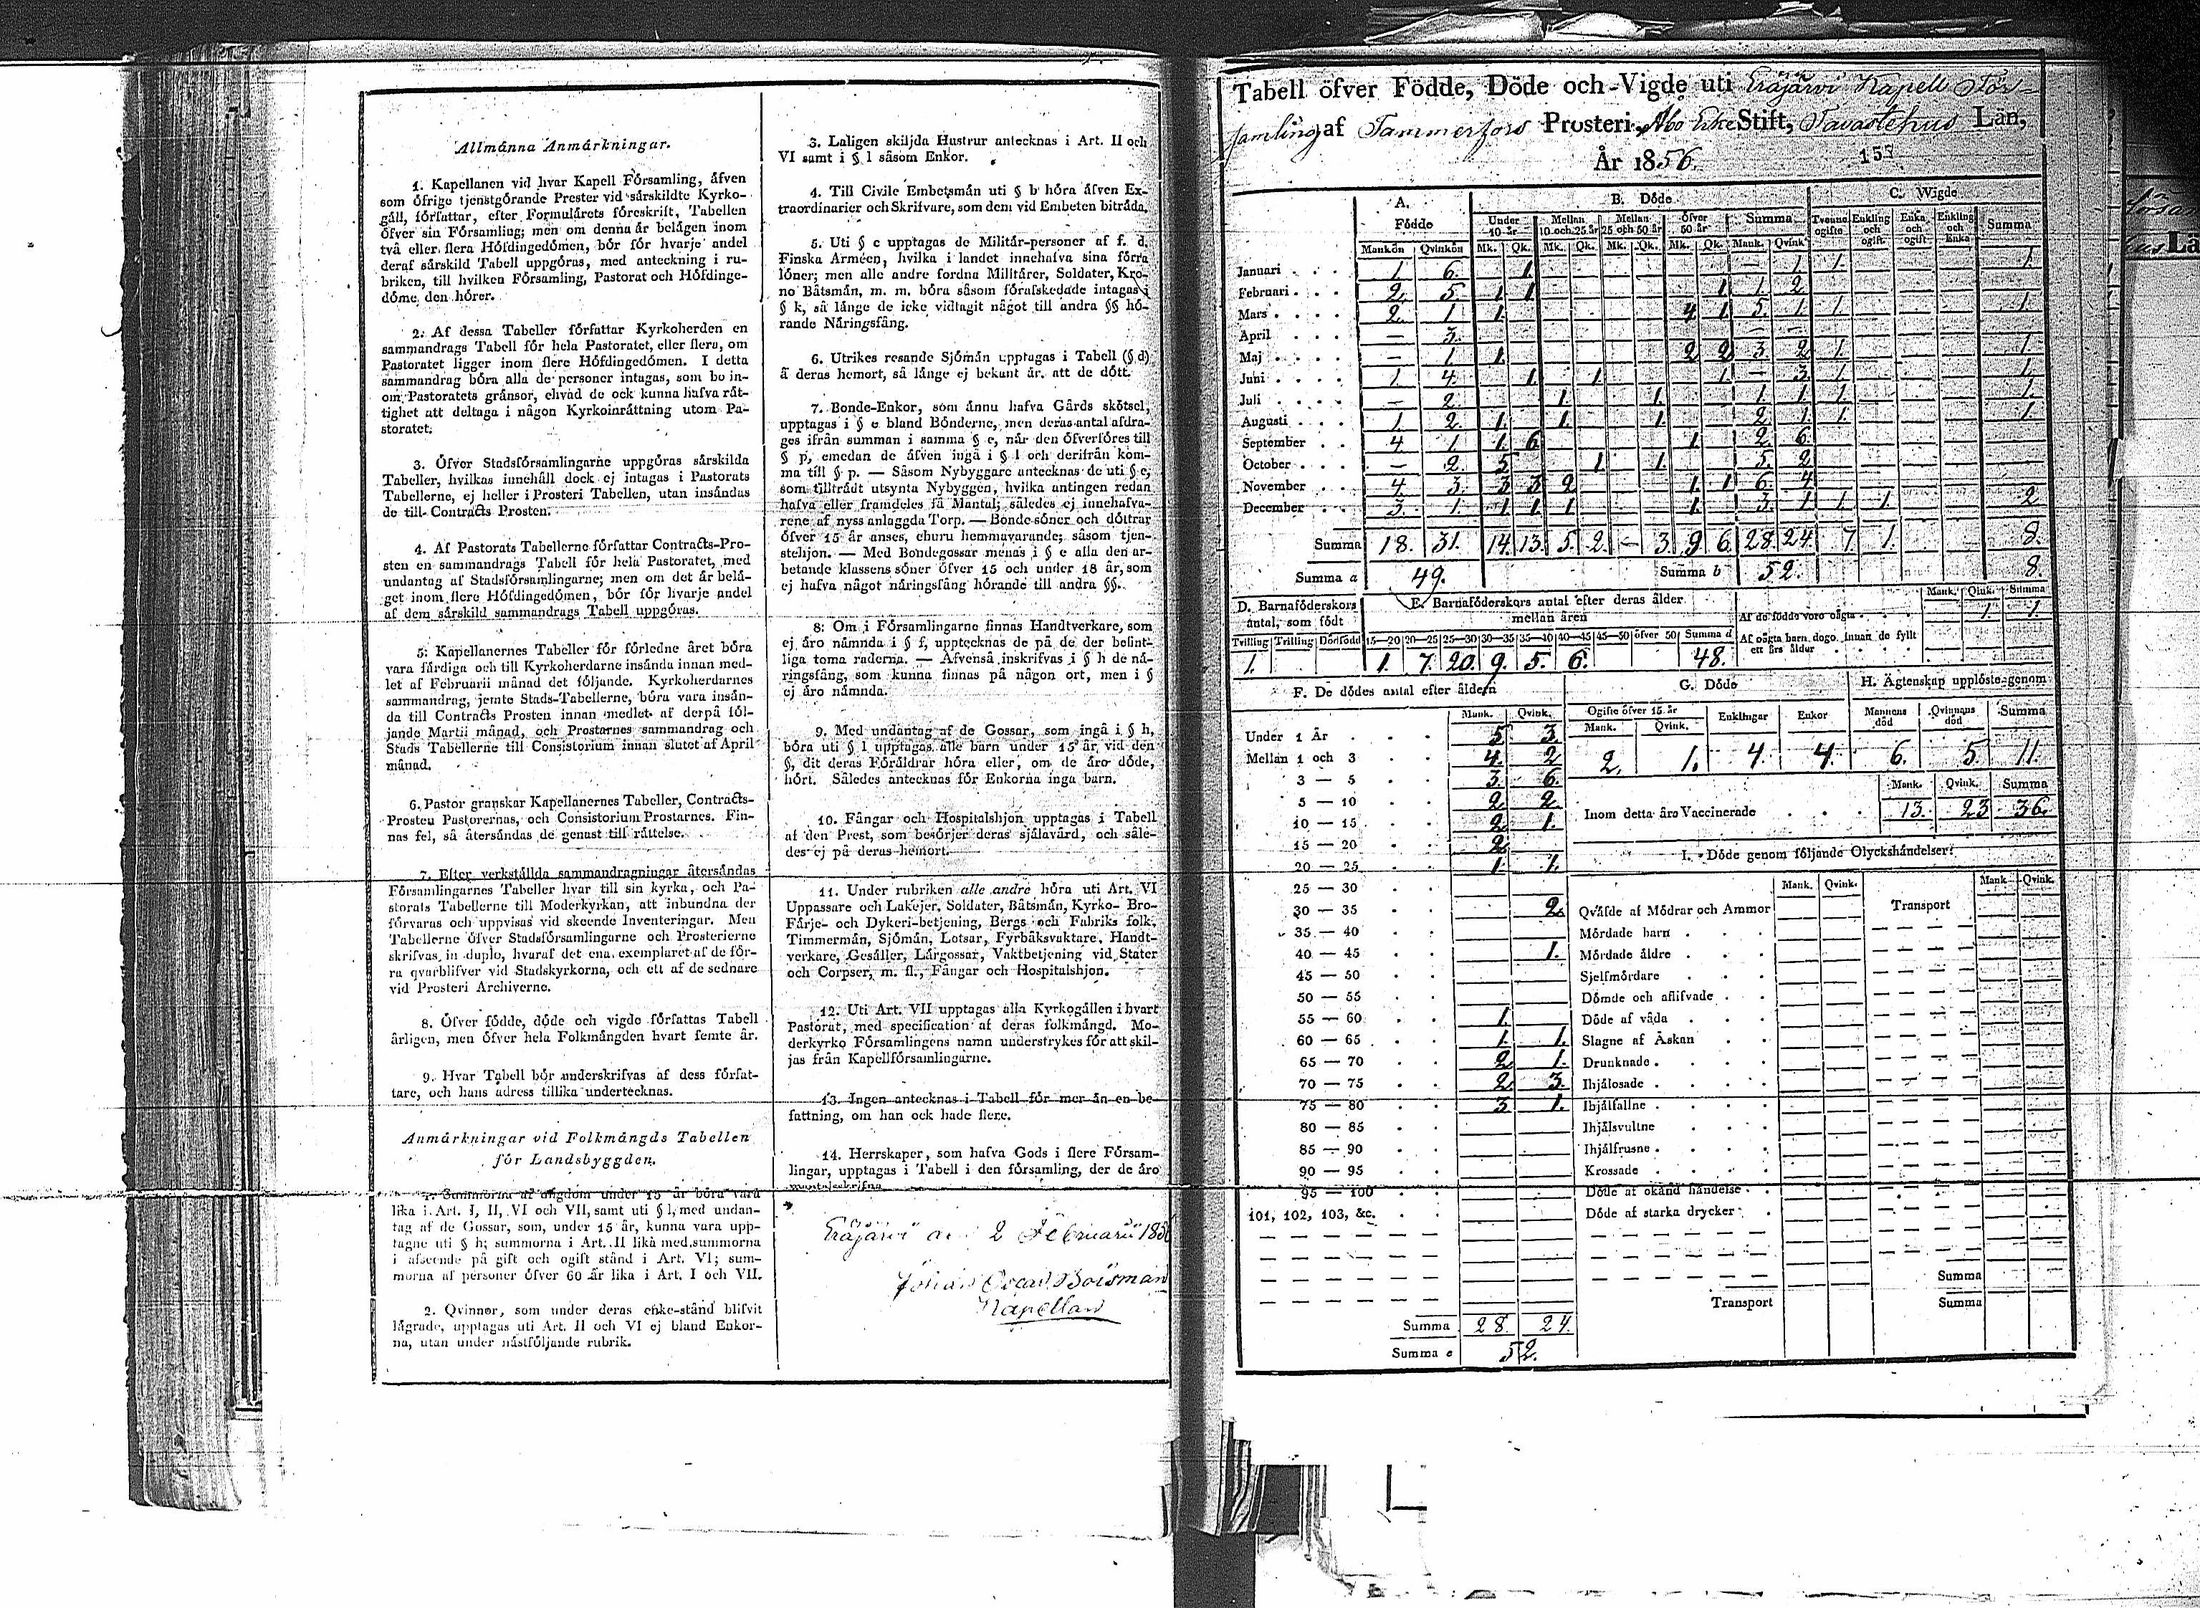 Allmånna Anmårkningar.
1. Kapellanen vid hvar Kapell Fórsamling, åfven
som ófrige tjenstgórande Prester vid sårskildte Kyrko-
gåll, fórfattar, efter Formulårets fóreskrift, Tabellen
ófver sin Fórsamling; men om denna år belågen inom
två eller flera Hófdingedómen, bór fór hvarje andel
deraf sårskild Tabell uppgóras, med anteckning i ru-
briken, till hvilken Fórsamling, Pastorat och Hófdinge-
dóme den hórer.
2. Af dessa Tabeller fórfattar Kyrkoherden en
sammandrags Tabell fór hela Pastoratet, eller flera, om
Pastoratet ligger inom flere Hófdingedómen. I detta
sammandrag bóra alla de personer intagas, som bo in-
om Pastoratets grånsor, ehvad de ock kunna hafva råt-
tighet att deltaga i någon Kyrkoinråttning utom Pa-
storatet.
3. Ófver Stadsfórsamlingarne uppgóras sårskilda
Tabeller, hvilkas innehåll dock ej intagas i Pastorats
Tabellerne, ej heller i Prosteri Tabellen, utan insåndas
de till Contracts Prosten.
4. Af Pastorats Tabellerne fórfattar Contracts-Pro-
sten en sammandrags Tabell fór hela Pastoratet, med
undantag af Stadsfórsamlingarne; men om det år belå-
get inom flere Hófdingedómen, bór fór hvarje andel
af dem sårskild sammandrags Tabell uppgóras.
5. Kapellanernes Tabeller fór fórledne året bóra
vara fårdiga och till Kyrkoherdarne insånda innan med-
let af Februarii månad det fóljande. Kyrkoherdarnes
sammandrag, jemte Stads-Tabellerne, bóra vara insån-
da till Contracts Prosten innan medlet af derpå fól-
jande Martii månad, och Prostarnes sammandrag och
Stads Tabellerne till Consistorium innan slutet af April
månad.
6. Pastor granskar Kapellanernes Tabeller, Contracts-
Prosten Pastorernas, och Consistorium Prostarnes. Fin-
nas fel, så återsåndas de genast till råttelse.
7. Efter verkstållda sammandragningar återsåndas
Fórsamlingarnes Tabeller hvar till sin kyrka, och Pa-
storats Tabellerne till Moderkyrkan, att inbundna der
fórvaras och uppvisas vid skeende Inventeringar. Men
Tabellerne ófver Stadsfórsamlingarne och Prosterierne
skrifvas in duplo, hvaraf det ena exemplaret af de fór-
ra qvarblifver vid Stadskyrkorna, och ett af de sednare
vid Prosteri Archiverne.
8. Ófver fódde, dóde och vigde fórfattas Tabell
årligen, men ófver hela Folkmångden hvart femte år.
9. Hvar Tabell bór underskrifvas af dess fórfat-
tare, och hans adress tillika undertecknas.
Anmårkningar vid Folkmångds Tabellen
fór Landsbyggden.
1. Summorna af ungdom under 15 år bóra vara
lika i Art. I, II, VI och VII, samt uti § l, med undan-
tag af de Gossar, som, under 15 år, kunna vara upp-
tagne uti § h; summorna i Art. II lika med summorna
i afseende på gift och ogift stånd i Art. VI; sum-
morna af personer ófver 60 år lika i Art. I och VII.
2. Qvinnor, som under deras enke-stånd blifvit
lågrade, upptagas uti Art. II och VI ej bland Enkor-
na, utan under nåstfóljande rubrik.
3. Laligen skiljda Hustrur antecknas i Art. II och
VI samt i § l såsom Enkor.
4. Till Civile Embetsmån uti § b hóra åfven Ex-
traordinarier och Skrifvare, som dem vid Embeten bitråda.
5. Uti § c upptagas de Militår-personer af f. d.
Finska Arméen, hvilka i landet innehafva sina fórra
lóner; men alle andre fordna Militårer, Soldater, Kro-
no Båtsmån, m. m. bóra såsom fórafskedade intagas i
§ k, så långe de icke vidtagit något till andra §§ hó-
rande Näringsfång.
6. Utrikes resande Sjómån upptagas i Tabell (§ d)
å deras hemort, så långe ej bekant år, att de dótt.
7. Bonde-Enkor, som ånnu hafva Gårds skótsel,
upptagas i § e bland Bónderne, men deras antal afdra-
ges ifrån summan i samma § e, når den ófverfóres till
§ p, emedan de åfven ingå i § l och derifrån kom-
ma till § p. — Såsom Nybyggare antecknas de uti § e,
som tilltrådt utsynta Nybyggen, hvilka antingen redan
hafva eller framdeles få Mantal; således ej innehafva-
rene af nyss anlaggda Torp. — Bonde-sóner och dóttrar
ófver 15 år anses, churu hemmavarande, såsom tjen-
stehjon. — Med Bondegossar menas i § e alla den ar-
betande klassens sóner ófver 15 och under 18 år, som
ej hafva något nåringsfång hórande till andra §§.
8. Om i Fórsamlingarne finnas Handtverkare, som
ej åro nåmnda i § f, upptecknas de på de der befint-
liga toma raderna. — Åfvenså inskrifvas i § h de nå-
ringsfång, som kunna finnas på någon ort, men i §
ej åro nåmnda.
9. Med undantag af de Gossar, som ingå i § h,
bóra uti § l upptagas alle barn under 15 år vid den
§, dit deras Fóråldrar hóra eller, om de åro dóde,
hórt. Således antecknas fór Enkorna inga barn.
10. Fångar och Hospitalshjon upptagas i Tabell
af den Prest, som besórjer deras sjålavård, och såle-
des ej på deras hemort.
11. Under rubriken alle andre hóra uti Art. VI
Uppassare och Lakejer, Soldater, Båtsmån, Kyrko- Bro-
Fårje- och Dykeri-betjening, Bergs och Fabriks folk,
Timmermån, Sjómån, Lotsar, Fyrbåksvaktare, Handt-
verkare, Gesåller, Lårgossar, Vaktbetjening vid Stater
och Corpser, m. fl., Fångar och Hospitalshjon.
12. Uti Art. VII upptagas alla Kyrkogållen i hvart
Pastorat, med specification af deras folkmångd. Mo-
derkyrko Fórsamlingens namn understrykes fór att skil-
jas från Kapellfórsamlingarne.
13. Ingen antecknas i Tabell fór mer ån en be-
fattning, om han ock hade flere.
14. Herrskaper, som hafva Gods i flere Fórsam-
lingar, upptagas i Tabell i den fórsamling, der de åro
mantalsskrifna.
Eräjärvi 2 Februarii
Johan Oscar Boisman
Kapellan
Tabell öfver Födde, Döde och Vigde uti Eräjärvi Kapell För-
samling af Tammerfors Prosteri, Åbo Erke Stift, Tavastehus Län,
År 1856.
A. B. Dóde C. Wigde
Fódde Under 10 år Mellan 10 och 25 år Mellan 25 och 50 år Ófver 50 år Summa Tvenne ogifte Enkling och ogift Enka och ogift Enkling och Enka Summa
Mankón Qvinkón Mk. Qk. Mk. Qk. Mk. Qk. Mk. Qk. Mank. Qvink.
Januari 1 6. 1. — 1 1. 1.
Februari 2. 5. 1 1 1 1 2
Mars 2. 1 1. 4 1. 5. 1 1 1.
April — 3. — —
Maj — 1 1. 2 2 3. 2 1. 1.
Juni 1. 4. 1. 1. 1. — 3. 1. 1.
Juli — 2. 1. 1. 1 1 1. 1.
Augusti 1. 2. 1. 1. 1. 2 1 1. 1.
September 4. 1 1. 6. 1. 2 6.
October — 2. 5. 1 1. 5. 2
November 4. 3. 3 3 2 1. 1 6. 4
December 3. 1. 1. 1. 1. 1. 3. 1 1 1. 2
Summa 18. 31. 14 13. 5. 2. — 3. 9 6. 28. 24. 7 1. 8.
Summa a 49. Summa b 52. 8.
D. Barnafóderskors antal, som fódt
Tvilling Trilling Dódfódd
1.
E. Barnafóderskors antal efter deras ålder mellan åren
15—20 20—25 25—30 30—35 35—40 40—45 45—50 ófver 50 Summa d
1. 7. 20. 9. 5. 6. 48.
Mank. Qvink. Summa
Af de fódde voro oågta 1. 1.
Af oågta barn dogo innan de fyllt
ett års ålder
F. De dódes antal efter åldern
Mank. Qvink.
Under 1 År 5 3.
Mellan 1 och 3 4. 2
3 — 5 3. 6.
5 — 10 2 2.
10 — 15 2 1.
15 — 20 2
20 — 25 1. 1.
25 — 30
30 — 35 2.
35 — 40
40 — 45 1.
45 — 50
50 — 55
55 — 60 1.
60 — 65 1. 1.
65 — 70 2 1.
70 — 75 2 3.
75 — 80 3 1.
80 — 85
85 — 90
90 — 95
95 — 100
101, 102, 103, &c.
Summa 28. 24.
Summa e 52.
G. Dóde
Ogifte ófver 15 år Enklingar Enkor
Mank. Qvink.
2. 1. 4 4.
H. Ågtenskap upplóste genom
Mannens dód Qvinnans dód Summa
6. 5. 11.
Mank. Qvink. Summa
Inom detta år Vaccinerade 13. 23 36.
I. Dóde genom fóljande Olyckshåndelser:
Mank. Qvink. Transport Mank. Qvink.
Qvåfde af Módrar och Ammor
Mórdade barn
Mórdade åldre
Sjelfmórdare
Dómde och aflifvade
Dóde af våda
Slagne af Åskan
Drunknade
Ihjålosade
Ihjålfallne
Ihjålsvultne
Ihjålfrusne
Krossade
Dóde af okånd håndelse
Dóde af starka drycker
Summa
Transport Summa